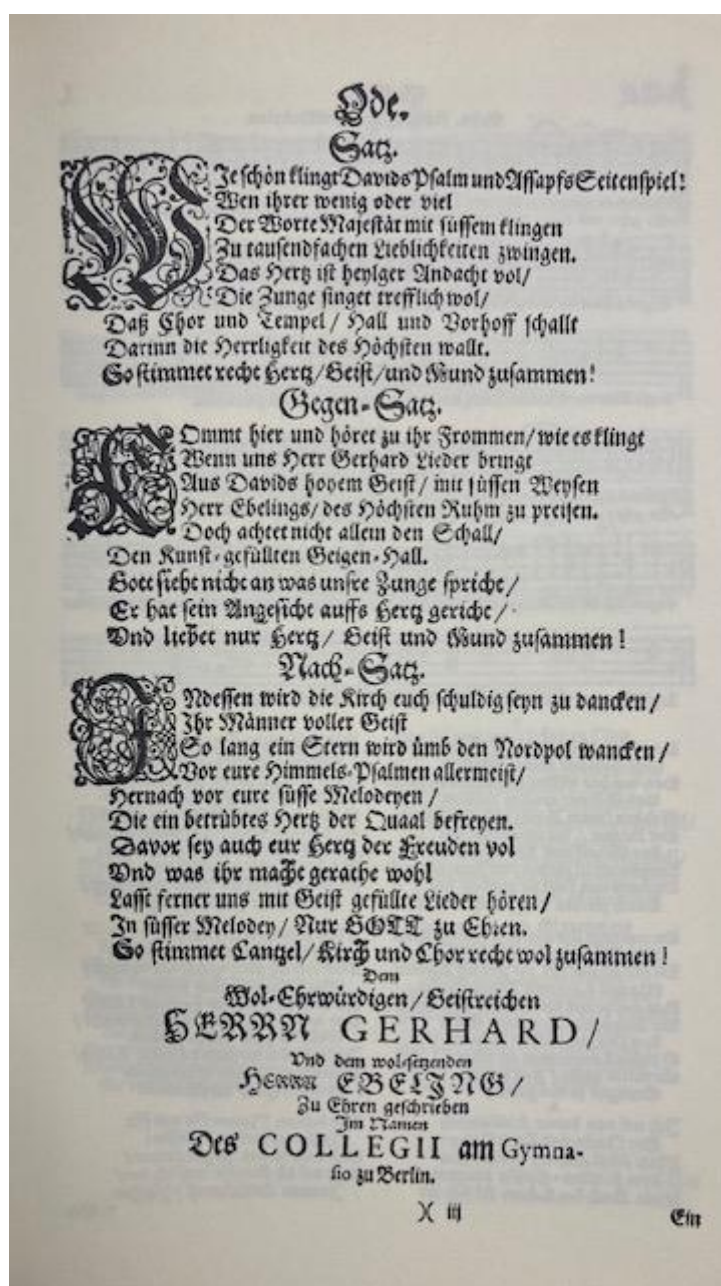 Ode.
Satz.
WIe schön klingt Davids Psalm und Assapfs Seitenspiel!
Wen ihrer wenig oder viel
Der Worte Majestät mit süssem klingen
Zu tausendfachen Lieblichkeiten zwingen.
Das Hertz ist heylger Andacht vol/
Die Zunge singet trefflich wol/
Daß Chor und Tempel / Hall und Vorhoff schallt
Darinn die Herrligkeit des Höchsten wallt.
So stimmet recht Hertz/Geist/und Mund zusammen!
Gegen-Satz.
KOmmt hier und höret zu ihr Frommen/wie es klingt
Wenn uns Herr Gerhard Lieder bringt
Aus Davids hohem Geist/ mit süssen Weysen
Herr Ebelings/des Höchsten Ruhm zu preisen.
Doch achtet nicht allein den Schall/
Den Kunst-gefüllten Geigen-Hall.
Gott sieht nicht an was unsre Zunge spricht/
Er hat sein Angesicht auffs Hertz gericht/
Vnd liebet nur Hertz/ Geist und Mund zusammen!
Nach-Satz.
INdessen wird die Kirch euch schuldig seyn zu dancken/
Ihr Männer voller Geist
So lang ein Stern wird ümb den Nordpol wancken/
Vor eure Himmels-Psalmen allermeist/
Hernach vor eure süsse Melodeyen /
Die ein betrübtes Hertz der Quaal befreyen.
Davor sey auch eur Hertz der Freuden vol
Vnd was ihr macht gerathe wohl
Lasst ferner uns mit Geist gefüllte Lieder hören/
In süsser Melodey/ Nur GOTT zu Ehren.
So stimmet Cantzel/Kirch und Chor recht wol zusammen!
Dem
Wol-Ehrwürdigen/Geistreichen
HERRN GERHARD/
Vnd dem wol-setzenden
HERRN EBELING/
Zu Ehren geschrieben
Im Namen
Des COLLEGII am Gymna-
sio zu Berlin.
X iij
Ein